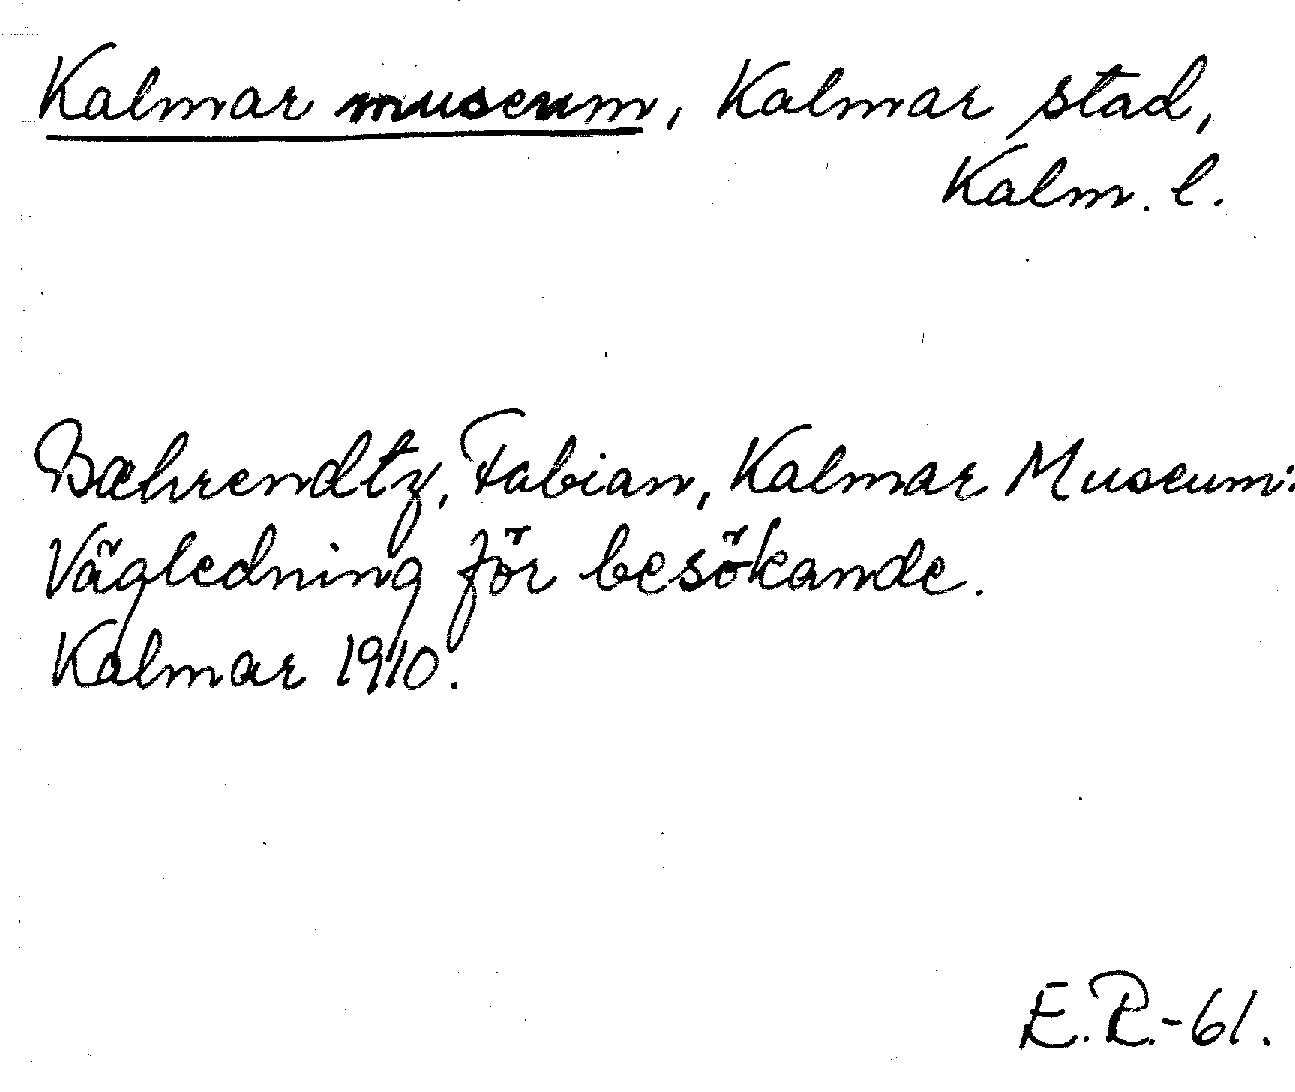 Kalmar museum, Kalmar stad,
Kalm. l.
Bæhrendtz, Fabian, Kalmar Museum:
Vägledning för besökande.
Kalmar 1910.
E.R.-61.